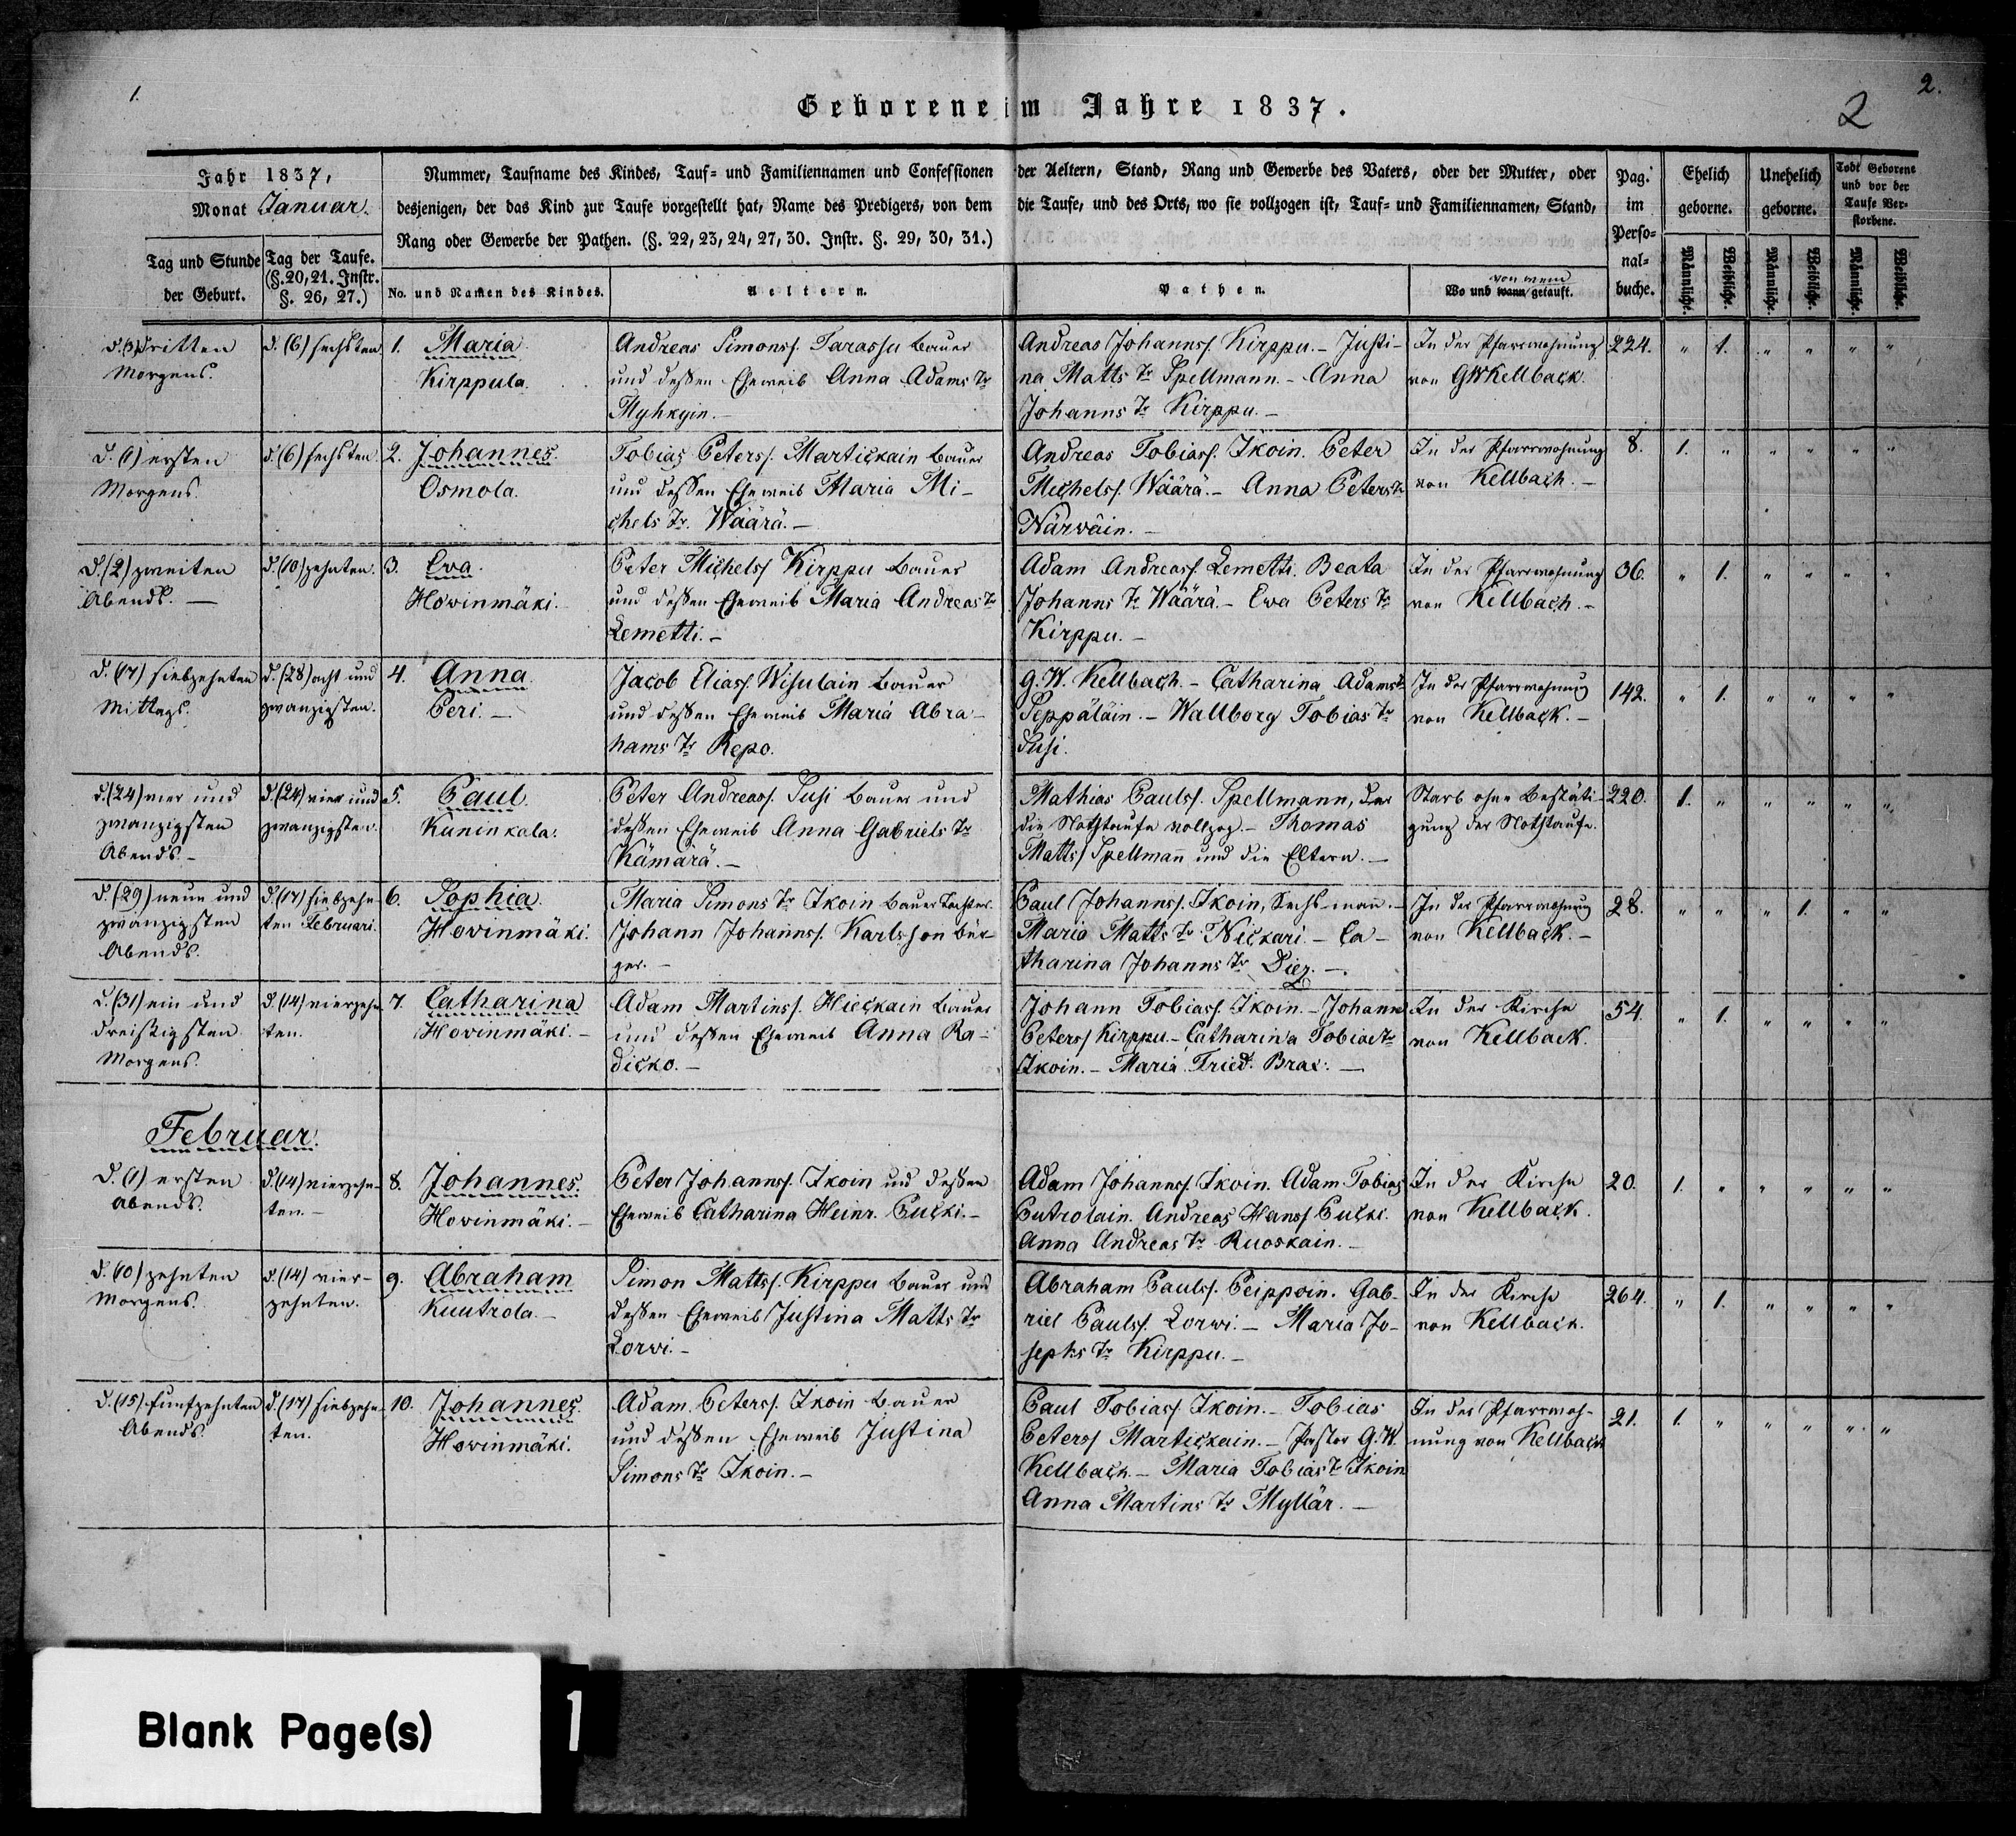 1.
2.
2
Geborene im Jahre 1837.
Jahr 1837,
Monat Januar.
Nummer, Taufname des Kindes, Tauf- und Familiennamen und Confessionen der Aeltern, Stand, Rang und Gewerbe des Vaters, oder der Mutter, oder
desjenigen, der das Kind zur Taufe vorgestellt hat, Name des Predigers, von dem die Taufe, und des Orts, wo sie vollzogen ist, Tauf- und Familiennamen, Stand,
Rang oder Gewerbe der Pathen. (§. 22, 23, 24, 27, 30. Instr. §. 29, 30, 31.)
Tag und Stunde
der Geburt.
Tag der Taufe.
(§. 20, 21. Instr.
§. 26, 27.)
No. und Namen des Kindes.
Aeltern.
Pathen.
von wem
Wo und wann getauft.
Pag.
im
Perso=
nal=
buche.
Ehelich
geborne.
Unehelich
geborne.
Todt Geborene
und vor der
Taufe Ver-
storbene.
Männliche.
Weibliche.
Männliche.
Weibliche.
Männliche.
Weibliche.
d. (3) dritten
Morgens.
d. (6) sechsten
1. Maria.
Kirppula.
Andreas Simonss. Tarassu Bauer
und deßen Eheweib Anna Adams Tr
Myhkyin.-
Andreas Johannss. Kirppu.- Justi-
na Matts Tr Spellmann.- Anna
Johanns Tr Kirppu.-
In der Pfarrwohnung
von GWKellback.
224. " 1. " " " "
d. (1) ersten
Morgens.
d. (6) sechsten
2. Johannes.
Osmola.
Tobias Peterss. Martickain Bauer
und deßen Eheweib Maria Mi-
chels Tr. Wäärä.-
Andreas Tobiass. Ikoin. Peter
Michelss. Wäärä.- Anna Peters Tr
Närwäin.-
In der Pfarrwohnung
von Kellbach.-
8. 1. " " " " "
d. (2) zweiten
Abends.-
d. (10) zehnten.
3. Eva.
Howinmäki.
Peter Michelss Kirppu Bauer
und deßen Eheweib Maria Andreas Tr
Lemetti.-
Adam Andreass. Lemetti. Beata
Johanns Tr Wäärä.- Ewa Peters Tr
Kirppu.-
In der Pfarrwohnung
von Kellbach.-
36. " 1. " " " "
d. (17) siebzehnten
Mittags.
d. (28) acht und
zwanzigsten.
4. Anna.
Peri.-
Jacob Eliass. Wisulain Bauer
und deßen Eheweib Maria Abra-
hams Tr Repo.
G. W. Kellbach.- Catharina Adams Tr
Seppäläin.- Wallborg Tobias Tr
Susi.
In der Pfarrwohnung
von Kellback.-
142. " 1. " " " "
d. (24) vier und
zwanzigsten
Abends.-
d. (24) vier und
zwanzigsten.
5. Paul.
Kaninkala.
Peter Andreass. Susi Bauer und
deßen Eheweib Anna Gabriels Tr
Kämärä.-
Mathias Paulss. Spellmann, der
die Nothtaufe vollzog.- Thomas
Mattss Spellmañ und die Eltern.-
Starb ohne Bestäti-
gung der Nothtaufe.
220. 1. " " " " "
d. (29) neun und
zwanzigsten
Abends.
d. (17) siebzehn-
ten Februari.
6. Sophia.
Howinmäki.
Maria Simons Tr Ikoin Bauer Tochter.
Johann Johannss. Karlsson Bür-
ger.-
Paul Johannss. Ikoin, Sechs-man.-
Maria Matts Tr Nickari.- Ca-
tharina Johanns Tr Diez.-
In der Pfarrwohnung
von Kellback.-
28. " " " 1. " "
d. (31) ein und
dreißigsten
Morgens.
d. (14) vierzehn-
ten.
7. Catharina
Howinmäki.-
Adam Martinss. Hieckain Bauer
und deßen Eheweib Anna Ra-
dicko.-
Johann Tobiass. Ikoin.- Johann
Peterss Kirppu.- Catharina Tobias Tr
Ikoin.- Maria Fried.
In der Kirche
von Kellback.
54. " 1. " " " "
Februar.
d. (1) ersten
Abends.
d. (14) vierzehn-
ten.-
8. Johannes.
Howinmäki.-
Peter Johannss. Ikoin und deßen
Eheweib Catharina Heinr. Pucki.-
Adam Johannss. Ikoin. Adam Tobias
Putrolain. Andreas Hanss Pucki.
Anna Andreas Tr Ruoskain.-
In der Kirche
von Kellback.
20. 1. " " " " "
d. (10) zehnten
Morgens.
d. (14) vier-
zehnten.
9. Abraham
Kuutrola.-
Simon Mattss. Kirppu Bauer und
deßen Eheweib Justina Matts Tr
Lorwi.-
Abraham Paulss. Peippoin. Gab-
riel Paulss. Lorwi.- Maria Jo-
sephs Tr Kirppu.-
In der Kirche
von Kellback.
264. " 1. " " " "
d. (15) funfzehnten
Abends.
d. (17) siebzehn-
ten.
10. Johannes.
Howinmäki.
Adam Peterss. Ikoin Bauer
und deßen Eheweib Justina
Simons Tr Ikoin.-
Paul Tobiass. Ikoin.- Tobias
Peterss Martickain.- Pastor G. W.
Kellbach.- Maria Tobias Tr Ikoin
Anna Martins Tr Myllär.-
In der Pfarrwoh-
nung von Kellback
21. 1. " " " " "
Blank Page(s)
1